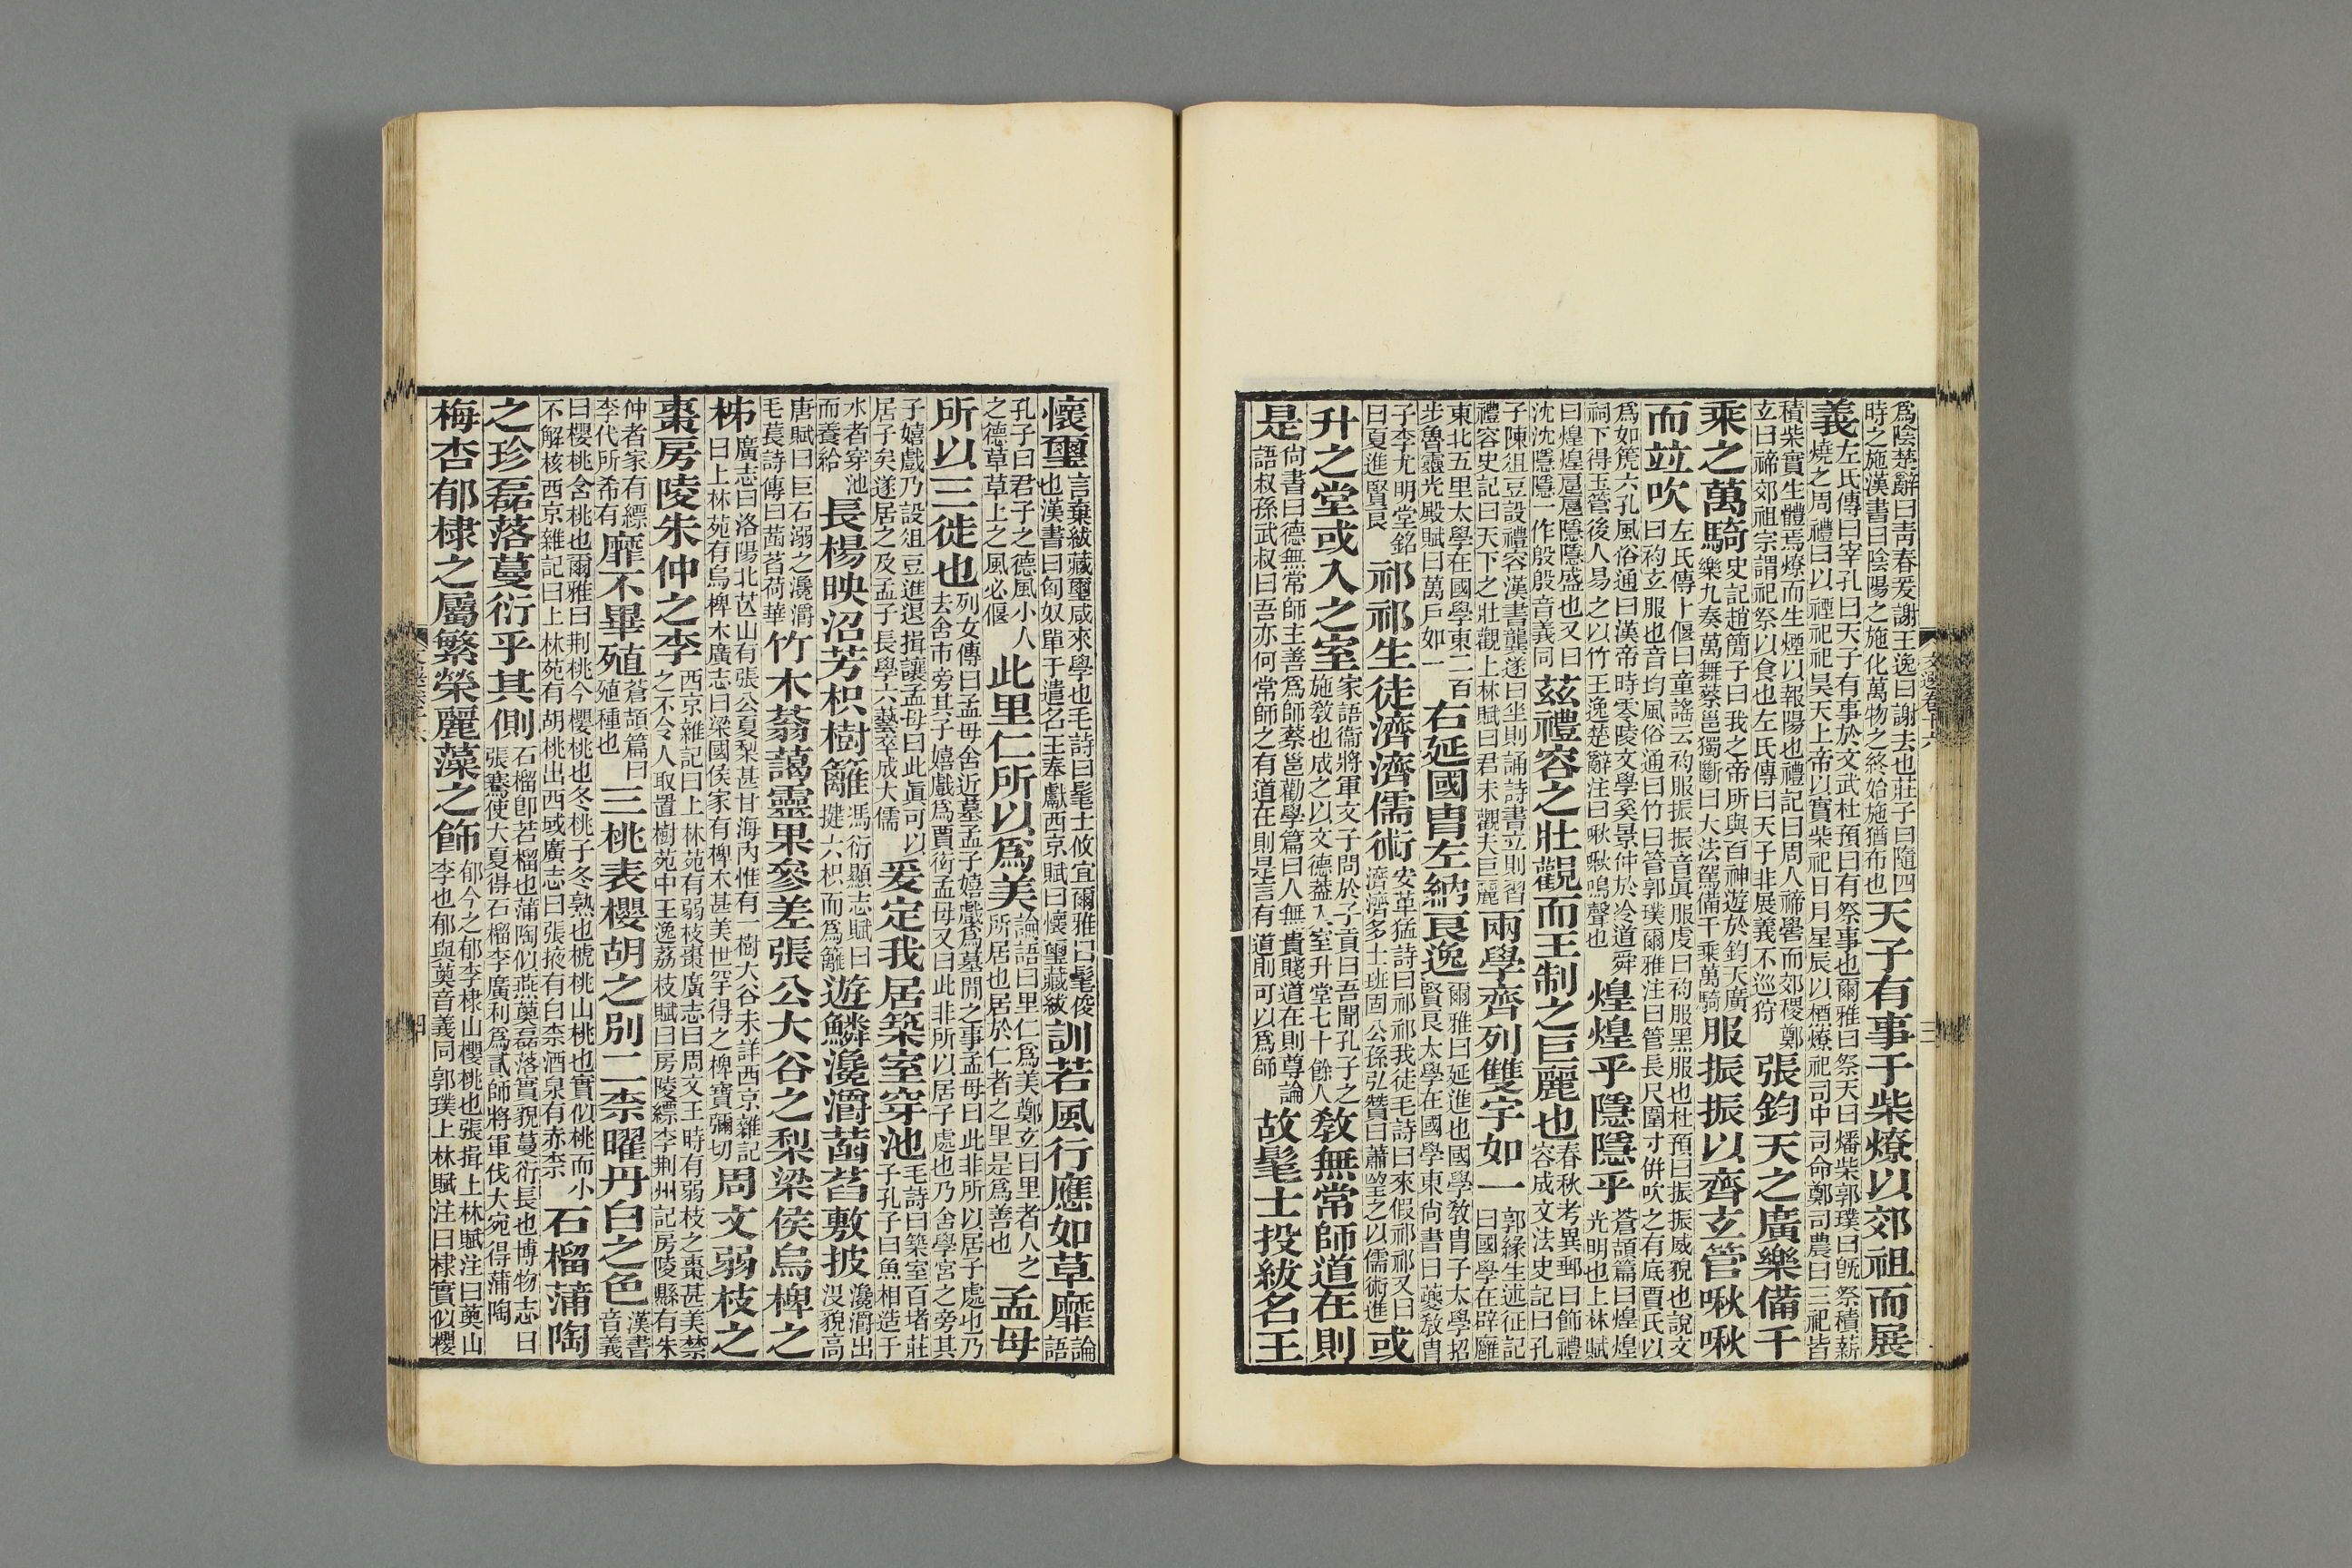 爲陰楚辭曰靑春爰謝王逸曰謝去也莊子曰隨四
時之施漢書曰陰陽之施化萬物之終始施猶布也
天子有事于柴燎以郊祖而展
義
左氏傳曰宰孔曰天子有事於文武杜預曰有祭事也爾雅曰祭天曰燔柴郭璞曰旣祭積薪
燒之周禮曰以禋祀祀昊天上帝以實柴祀日月星辰以槱燎祀司中司命鄭司農曰三祀皆
積柴實牲體焉燎而生煙以報陽也禮記曰周人禘嚳而郊稷鄭
玄曰禘郊祖宗謂祀祭以食也左氏傳曰天子非展義不巡狩
張鈞天之廣樂備千
乘之萬騎
史記趙簡子曰我之帝所與百神遊於鈞天廣
樂九奏萬舞蔡邕獨斷曰大法駕備千乘萬騎
服振振以齊玄管啾啾
而竝吹
左氏傳卜偃曰童謠云袀服振振音眞服虔曰袀服黑服也杜預曰振振威貌也說文
曰袀玄服也音均風俗通曰竹曰管郭璞爾雅注曰管長尺圍寸倂吹之有底賈氏以
爲如篪六孔風俗通曰漢帝時零陵文學奚景仲於泠道舜
祠下得玉管後人易之以竹王逸楚辭注曰啾啾鳴聲也
煌煌乎隱隱乎
蒼頡篇曰煌煌
光明也上林賦
曰煌煌扈扈隱隱盛也又曰
沈沈隱隱一作殷殷音義同
茲禮容之壯觀而王制之巨麗也
春秋考異郵曰飾禮
容成文法史記曰孔
子陳俎豆設禮容漢書龔遂曰坐則誦詩書立則習
禮容史記曰天下之壯觀上林賦曰君未觀夫巨麗
兩學齊列雙宇如一
郭緣生述征記
曰國學在辟廱
東北五里太學在國學東二百
步魯靈光殿賦曰萬戶如一
右延國冑左納良逸
爾雅曰延進也國學敎冑子太學招
賢良太學在國學東尙書曰夔敎冑
子李尤明堂銘
曰夏進賢良
祁祁生徒濟濟儒術
安革猛詩曰祁祁我徒毛詩曰來假祁祁又曰
濟濟多士班固公孫弘贊曰蕭望之以儒術進
或
升之堂或入之室
家語衞將軍文子問於子貢曰吾聞孔子之
施敎也成之以文德蓋入室升堂七十餘人
敎無常師道在則
是
尙書曰德無常師主善爲師蔡邕勸學篇曰人無貴賤道在則尊論
語叔孫武叔曰吾亦何常師之有道在則是言有道則可以爲師
故髦士投紱名王
懷璽
言棄紱藏璽咸來學也毛詩曰髦士攸宜爾雅曰髦俊
也漢書曰匈奴單于遣名王奉獻西京賦曰懷璽藏紱
訓若風行應如草靡
論
語
孔子曰君子之德風小人
之德草草上之風必偃
此里仁所以爲美
論語曰里仁爲美鄭玄曰里者人之
所居也居於仁者之里是爲善也
孟母
所以三徙也
列女傳曰孟母舍近墓孟子嬉戲爲墓閒之事孟母曰此非所以居子處也乃
去舍市旁其子嬉戲爲賈衒孟母又曰此非所以居子處也乃舍學宮之旁其
子嬉戲乃設俎豆進退揖讓孟母曰此眞可以
居子矣遂居之及孟子長學六藝卒成大儒
爰定我居築室穿池
毛詩曰築室百堵莊
子孔子曰魚相造于
水者穿池
而養給
長楊映沼芳枳樹籬
馮衍顯志賦曰
揵六枳而爲籬
遊鱗瀺灂菡萏敷披
瀺灂出
沒貌高
唐賦曰巨石溺之瀺灂
毛萇詩傳曰菡萏荷華
竹木蓊藹靈果參差張公大谷之梨梁侯烏椑之
柹
廣志曰洛陽北芒山有張公夏梨甚甘海內惟有一樹大谷未詳西京雜記
曰上林苑有烏椑木廣志曰梁國侯家有椑木甚美世罕得之椑賓彌切
周文弱枝之
棗房陵朱仲之李
西京雜記曰上林苑有弱枝棗廣志曰周文王時有弱枝之棗甚美禁
之不令人取置樹苑中王逸荔枝賦曰房陵縹李荆州記房陵縣有朱
仲者家有縹
李代所希有
靡不畢殖
蒼頡篇曰
殖種也
三桃表櫻胡之別二柰曜丹白之色
漢書
音義
曰櫻桃含桃也爾雅曰荆桃今櫻桃也冬桃子冬熟也榹桃山桃也實似桃而小
不解核西京雜記曰上林苑有胡桃出西域廣志曰張掖有白柰酒泉有赤柰
石榴蒲陶
之珍磊落蔓衍乎其側
石榴卽若榴也蒲陶似燕薁磊落實貌蔓衍長也博物志曰
張騫使大夏得石榴李廣利爲貳師將軍伐大宛得蒲陶
梅杏郁棣之屬繁榮麗藻之飾
郁今之郁李棣山櫻桃也張揖上林賦注曰薁山
李也郁與薁音義同郭璞上林賦注曰棣實似櫻